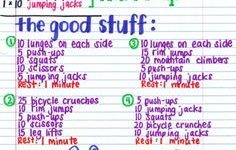 10 jumping jacks
the good stuff:
① 10 lunges on each side
5 push-ups
10 squats
10 scissors
5 jumping jacks
Rest: 1 minute
② 25 bicycle crunches
10 jumping jacks
5 push-ups
10 scissors
15 leg lifts
Rest: 1 minute
③ 10 lunges on each side
rim jumps
20 mountain climbers
5 push-ups
5 jumping jacks
Rest: 1 minute
④ 5 push-ups
jumping jacks
10 squats
20 bicycle crunches
10 jumping jacks
Rest: 1 minute